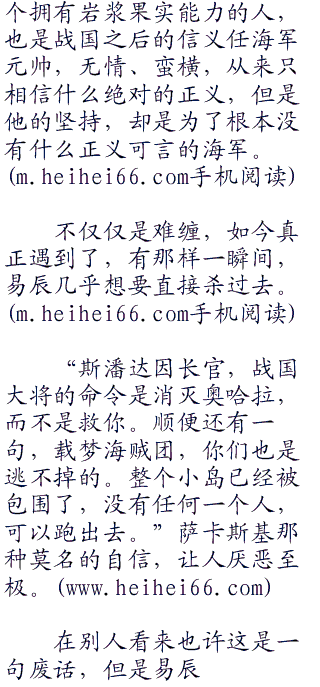 个拥有岩浆果实能力的人，
也是战国之后的信义任海军
元帅，无情、蛮横，从来只
相信什么绝对的正义，但是
他的坚持，却是为了根本没
有什么正义可言的海军。
(m.heihei66.com手机阅读)
不仅仅是难缠，如今真
正遇到了，有那样一瞬间，
易辰几乎想要直接杀过去。
(m.heihei66.com手机阅读)
“斯潘达因长官，战国
大将的命令是消灭奥哈拉，
而不是救你。顺便还有一
句，载梦海贼团，你们也是
逃不掉的。整个小岛已经被
包围了，没有任何一个人，
可以跑出去。”萨卡斯基那
种莫名的自信，让人厌恶至
极。(www.heihei66.com)
在别人看来也许这是一
句废话，但是易辰